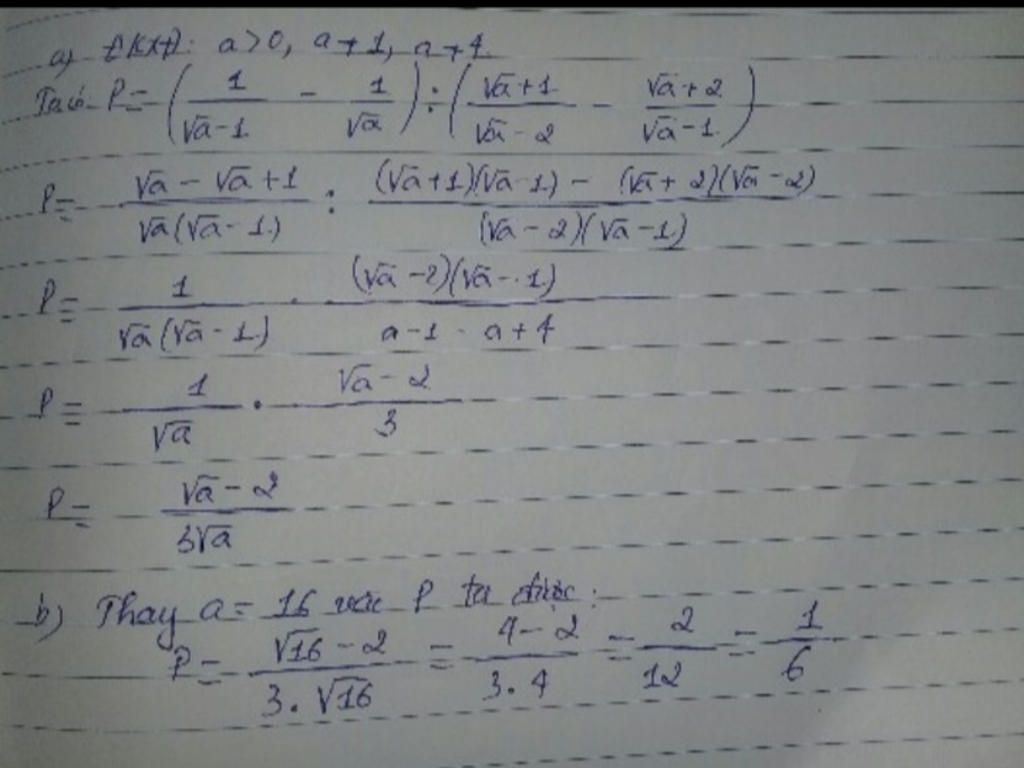 a) ĐKXĐ: a > 0, a ≠ 1, a ≠ 4.
Ta có P = (1/(√a - 1) - 1/√a) : ((√a + 1)/(√a - 2) - (√a + 2)/(√a - 1))
P = (√a - √a + 1)/(√a(√a - 1)) : ((√a + 1)(√a - 1) - (√a + 2)(√a - 2))/((√a - 2)(√a - 1))
P = 1/(√a(√a - 1)) . ((√a - 2)(√a - 1))/(a - 1 - a + 4)
P = 1/√a . (√a - 2)/3
P = (√a - 2)/(3√a)
b) Thay a = 16 vào P ta được:
P = (√16 - 2)/(3 . √16) = (4 - 2)/(3 . 4) = 2/12 = 1/6